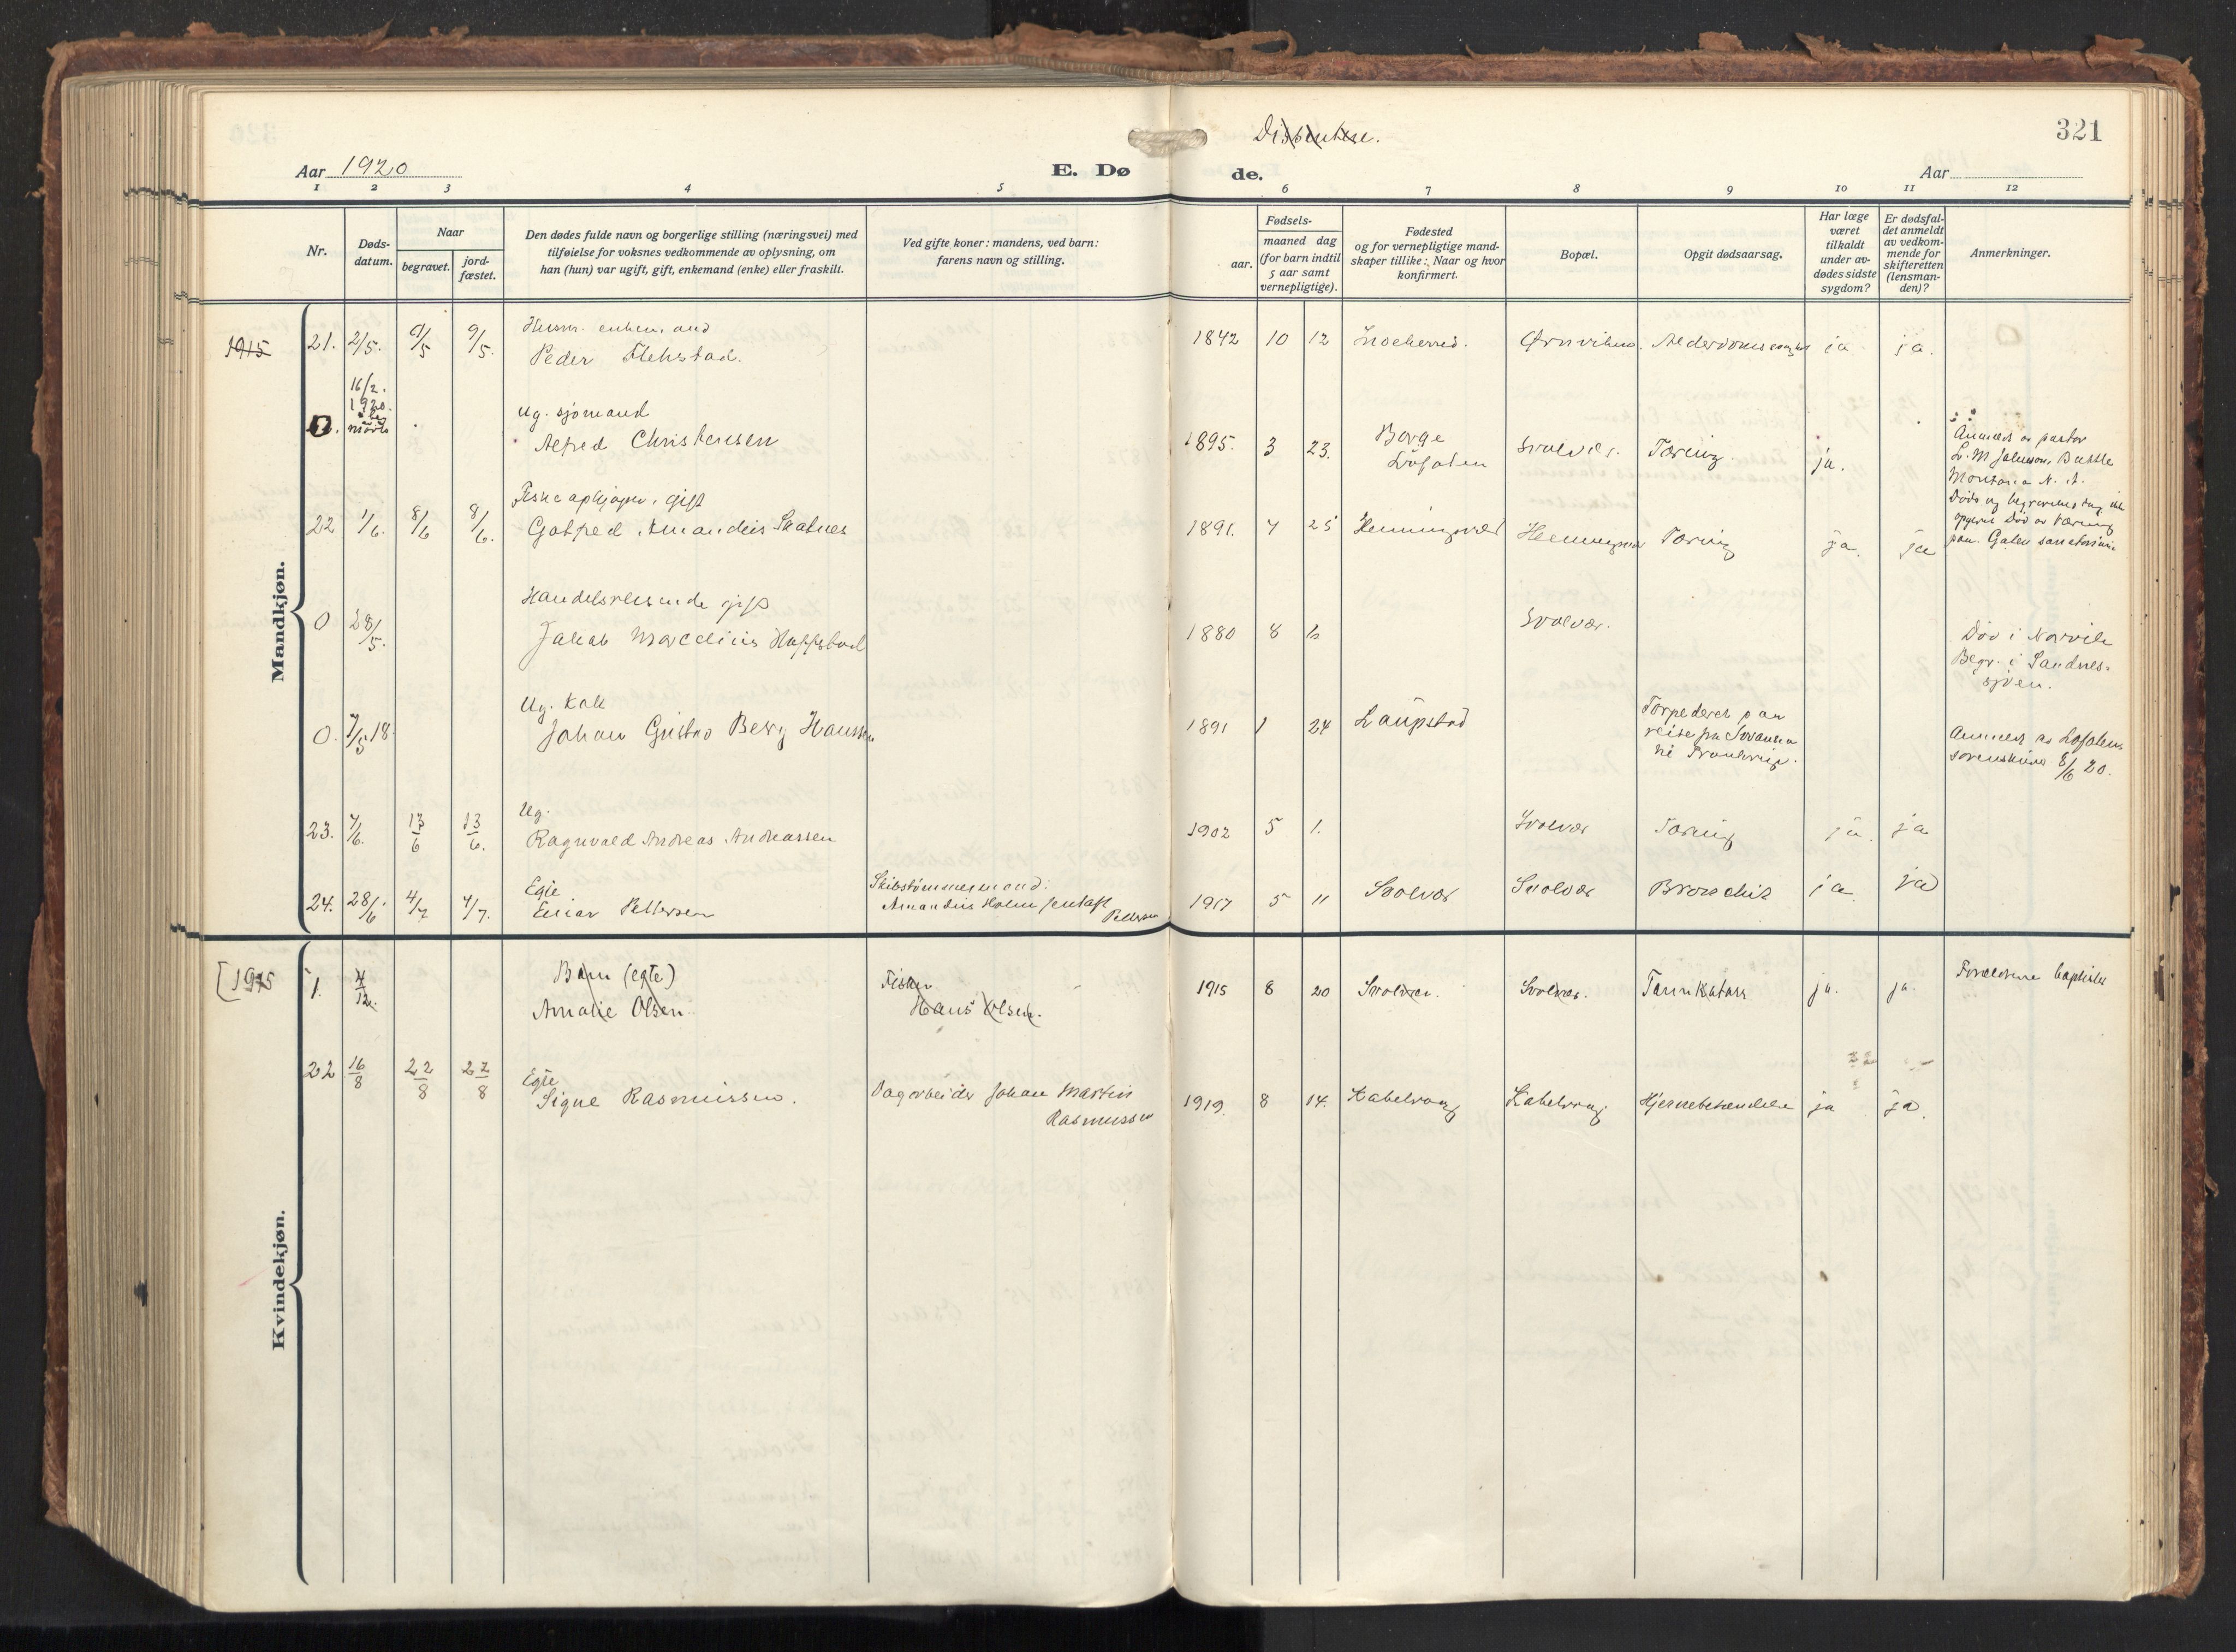 Dissentere.
321
Aar 1920
E. Dø
de.
Aar
1 2 3 4 5 6 7 8 9 10 11 12
Nr.
Døds-
datum.
Naar
begravet.
jord-
fæstet.
Den dødes fulde navn og borgerlige stilling (næringsvei) med
tilføielse for voksnes vedkommende av oplysning, om
han (hun) var ugift, gift, enkemand (enke) eller fraskilt.
Ved gifte koner: mandens, ved barn:
farens navn og stilling.
Fødsels-
aar.
maaned dag
(for barn indtil
5 aar samt
vernepligtige).
Fødested
og for vernepligtige mand-
skaper tillike: Naar og hvor
konfirmert.
Bopæl.
Opgit dødsaarsag.
Har læge
været
tilkaldt
under av-
dødes sidste
sygdom?
Er dødsfal-
det anmeldt
av vedkom-
mende for
skifteretten
(lensman-
den)?
Anmerkninger.
Mandkjøn.
1915
21. 2/5. 9/5 9/5.
Peder
1842 10 12 ja ja.
16/2.
1920.
Ug. sjømand
Alfred Christensen
1895. 3 23. Borge
Lofoten
Svolvær. Tæring. ja.
Anmeldt av pastor
Butte
Montana N. A.
22 1/6. 8/6 8/6.
gift
Gotfred Amandus
1891. 7 25 Henningsvær Henningsvær Tæring ja. ja
0 28/5.
Handelsreisende gift
Jakob
1880 8 Svolvær.
Død i Narvik
Begr. i Sandnes-
sjøen.
0. 7/5 18.
Ug. Kok
Johan Gustav Berg Hanssen
1891 1 24 Laupstad
Torpederet paa
reise fra Swansea
til Frankrig.
Anmeldt av Lofoten
sorenskriver 8/6 20.
23. 7/6. 13/6 13/6.
Ug.
Ragnvald Andreas Andreassen
1902 5 1. Svolvær Tæring ja. ja
24. 28/6. 4/7 4/7.
Egte
Einar Pettersen
Skibstømmermand
Amandus Holm Jentoft
Pettersen
1917 5 11 Svolvær Svolvær Bronchit ja ja
Kvindekjøn.
[1915
1. 4/12.
Barn (egte)
Amalie Olsen.
Fisker
Hans Olsen.
1915 8 20 Svolvær. Svolvær. Tarmkatarr ja. ja.
Forældrene baptister
22 16/8 22/8 22/8
Egte
Signe Rasmussen.
Dagarbeider Johan Martin
Rasmussen
1919. 8 14. Kabelvaag Kabelvaag. Hjernebetændelse ja ja.